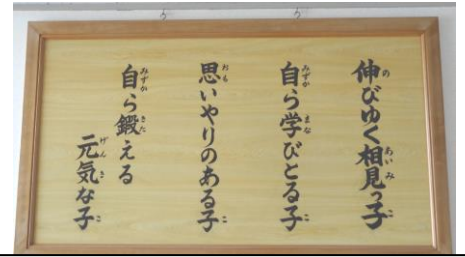 伸びゆく相見っ子
自ら学びとる子
思いやりのある子
自ら鍛える
元気な子